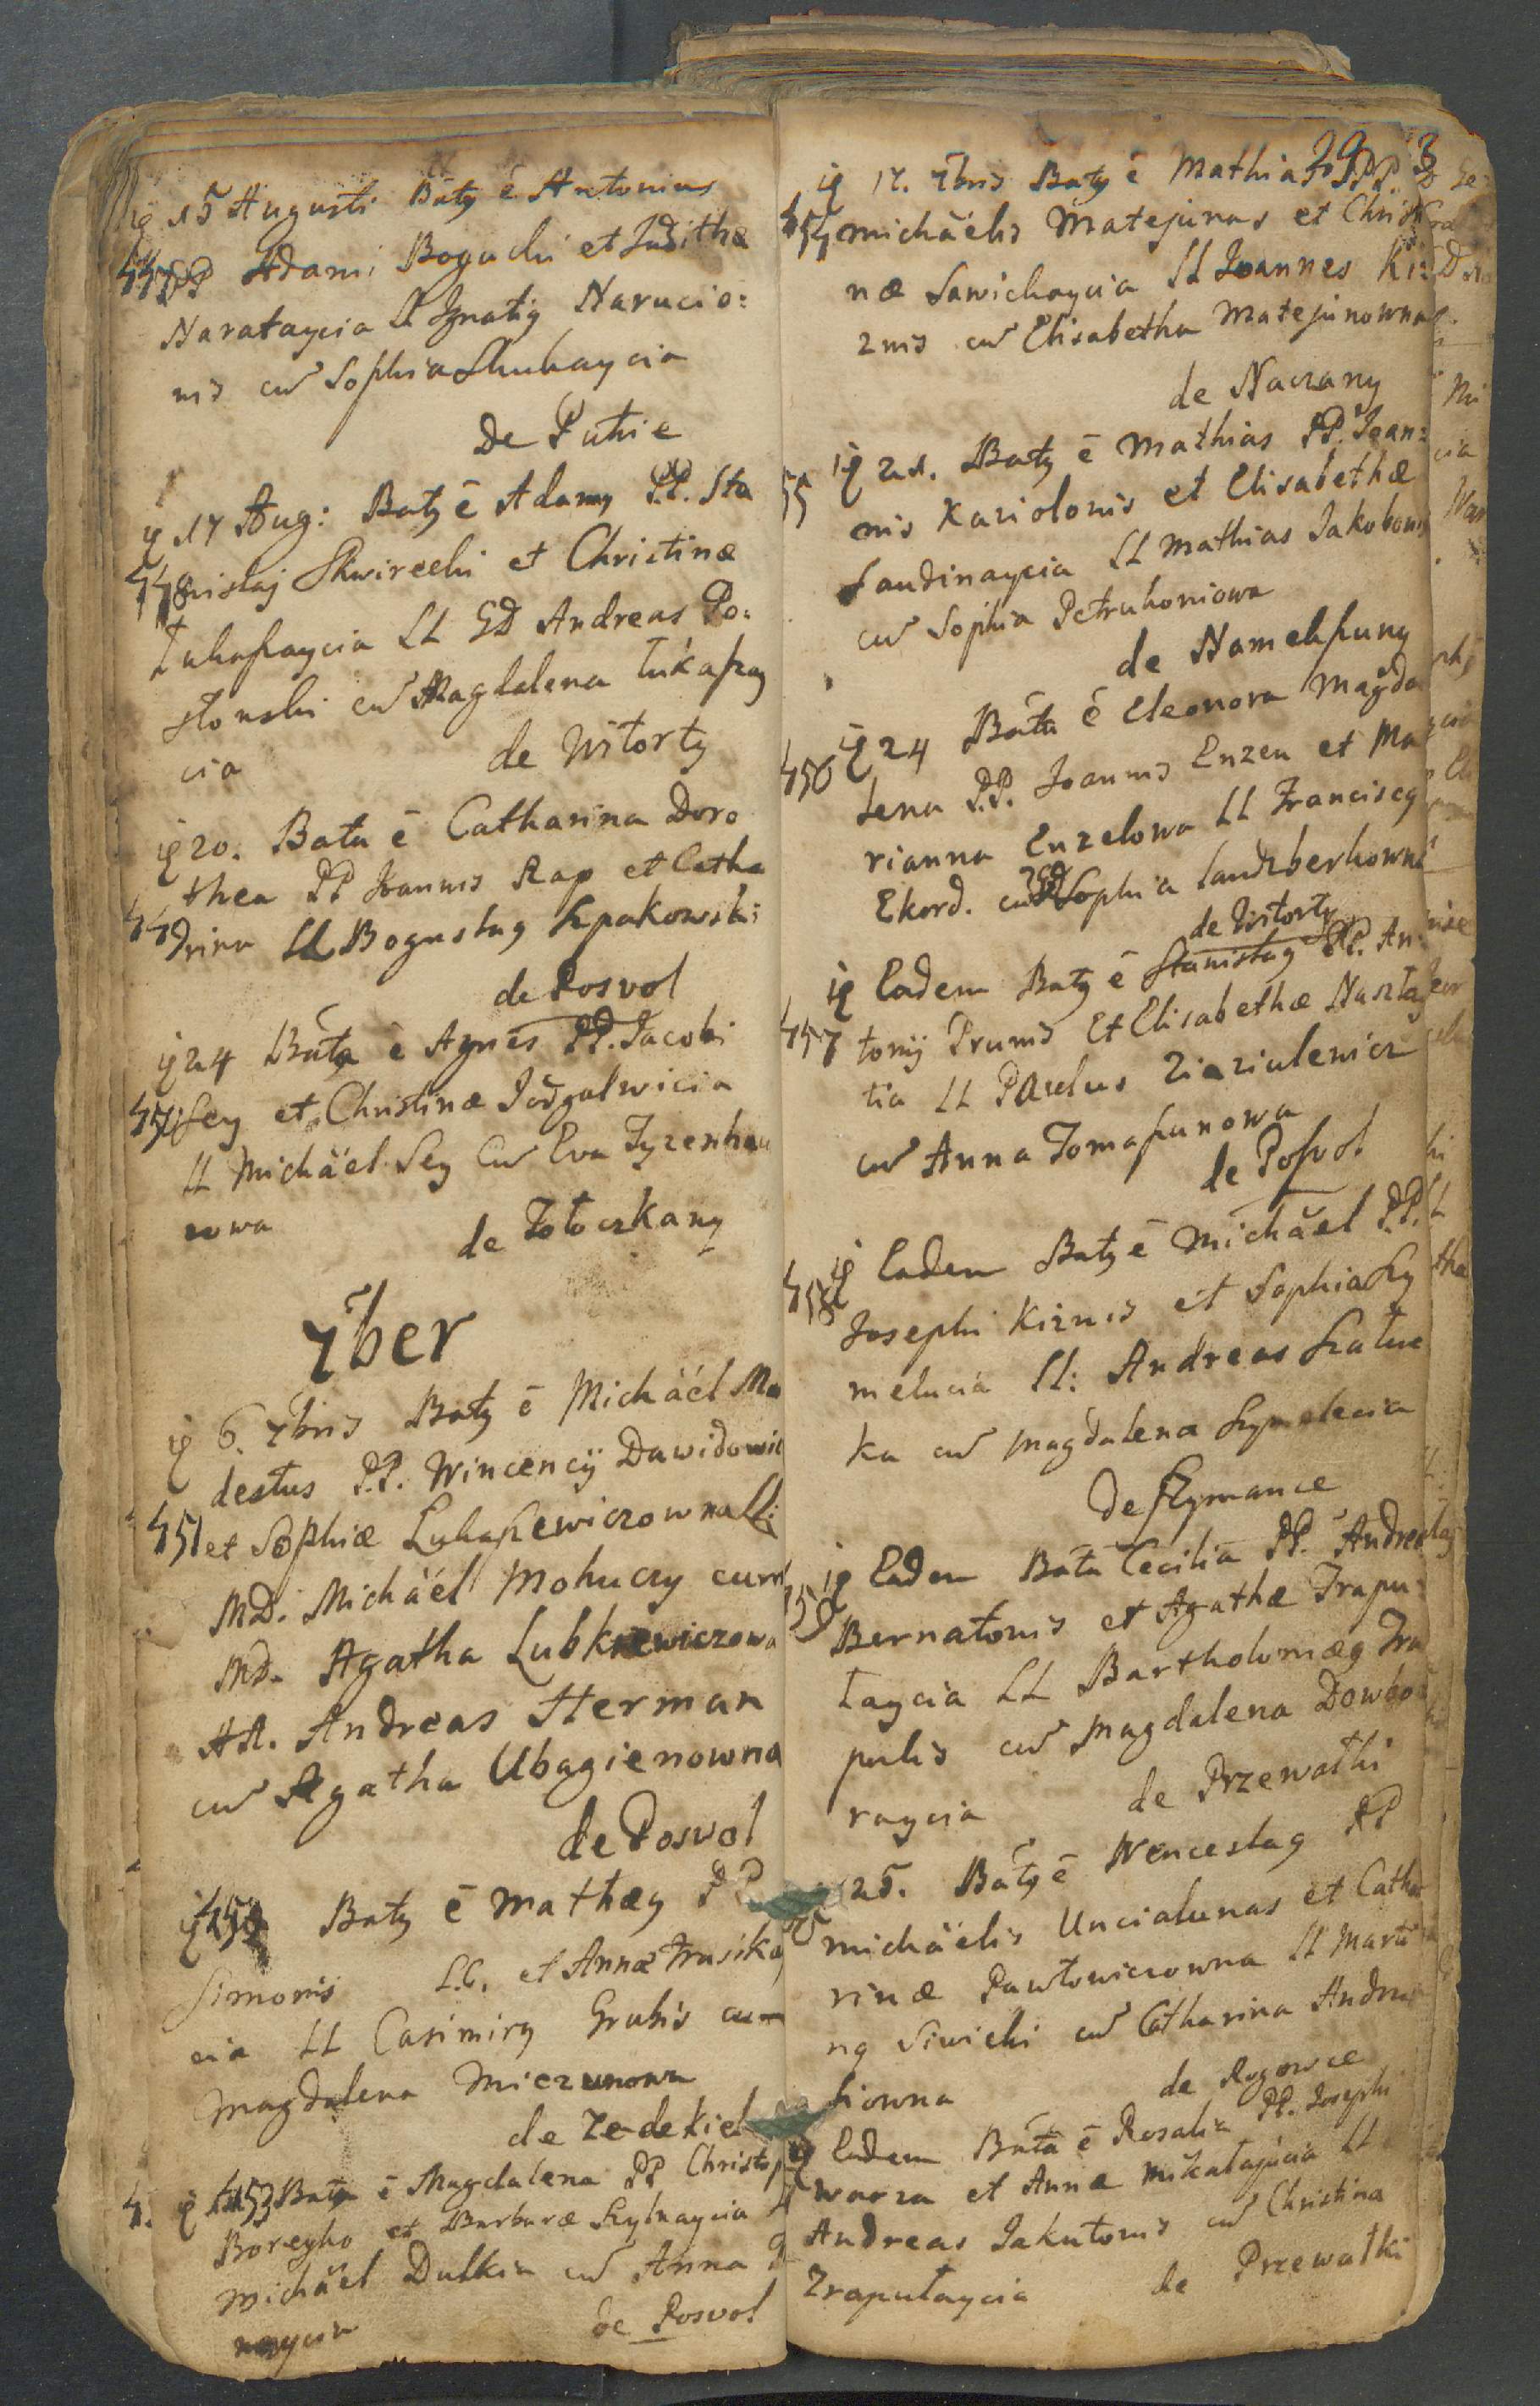 15 Augusti Baty ē Antonius
447 PP Adami Boguchi et Juditha
Narataycia LL Ignaty Narucio:
nis cu Sophia Skukaycia
De Puhie
17 Aug: Baty ē Adamy PP. Sta
448 nislaj Skwirechi et Christinæ
Lukaszaycia LL GD Andreas Po:
złonski cu Magdalena Lukaszay
cia de Witorty
20. Bata ē Catharina Doro
thea PP Joannis Rap et Catha
449 rina LL Boguslay Szpakowski
de Posvol
24 Bata ē Agnes PP. Jacobi
450 Sey et Christinæ Jodgalwicia
LL Michäel Sey Cu Eva Tyzenhau
zowa de Totoczkany
7ber
6. 7bris Baty ē Michäel Mo
destus PP. Wincencij Dawidowic
451 et Sophiæ Lukaszewiczowna LL:
MD. Michäel Mohuczy cum
MD. Agatha Lubkiewiczowa
AA. Andreas Herman
cu Agatha Ubagienowna
de Posvol
452 Baty ē Mathæy PP
Simonis L.C. et Annæ Trusika
cia LL Casimiry Grubis cum
Magdalena Miezunowa
de Zedekiel
453 Bata ē Magdalena PP Christop
Boreyko et Barbaræ Szylnaycia
Michäel Dulkin cu Anna
naycia de Posvol
393
17. 7bris Baty ē Mathias PP.
454 Michäelis Matejunas et Christi
næ Sawickaycia LL Joannes Kir:
znis cu Elisabetha Matejunowna
de Naczany
21. Baty ē Mathias PP. Joan:
55 nis Kaziolonis et Elisabethæ
Saudinaycia LL Mathias Jakobonis
cu Sophia Petrukoniowa
de Namekszuny
24 Bata ē Eleonora Magda
456 lena PP. Joannis Enzen et Ma
rianna Enzelowa LL Franciscy
Ekord. cu GD Sophia Landzberkowna
de Witorty
Eadem Baty ē Stanislay PP. An:
457 tonij Prunis Et Elisabethæ Nasztay
tia LL Paulus Ziaziulewicz
cu Anna Tomaszunowa
de Poswol
Eadem Baty ē Michäel PP.
458 Josephi Kirnis et Sophia Szy
melucia LL: Andreas Szatue
ka cu Magdalena Szymelecia
De Szymance
Eadem Bata Cecilia PP. Andreæ
59 Bernatonis et Agathæ Trapu:
laycia LL Bartholomæy Tra
pulis cu Magdalena Dowbo
raycia de Przewalki
25. Baty ē Wenceslay PP
Michäelis Uncialunas et Catha
rinæ Pawłowiczowna LL Marti
ny Siwicki cu Catharina Andru
kiowna de Rogowce
Eadem Bata ē Rosalia PP. Josephi
Warza et Annæ Mikałajucia LL
Andreas Jakutonis cu Christina
Trapułaycia de Przewałki